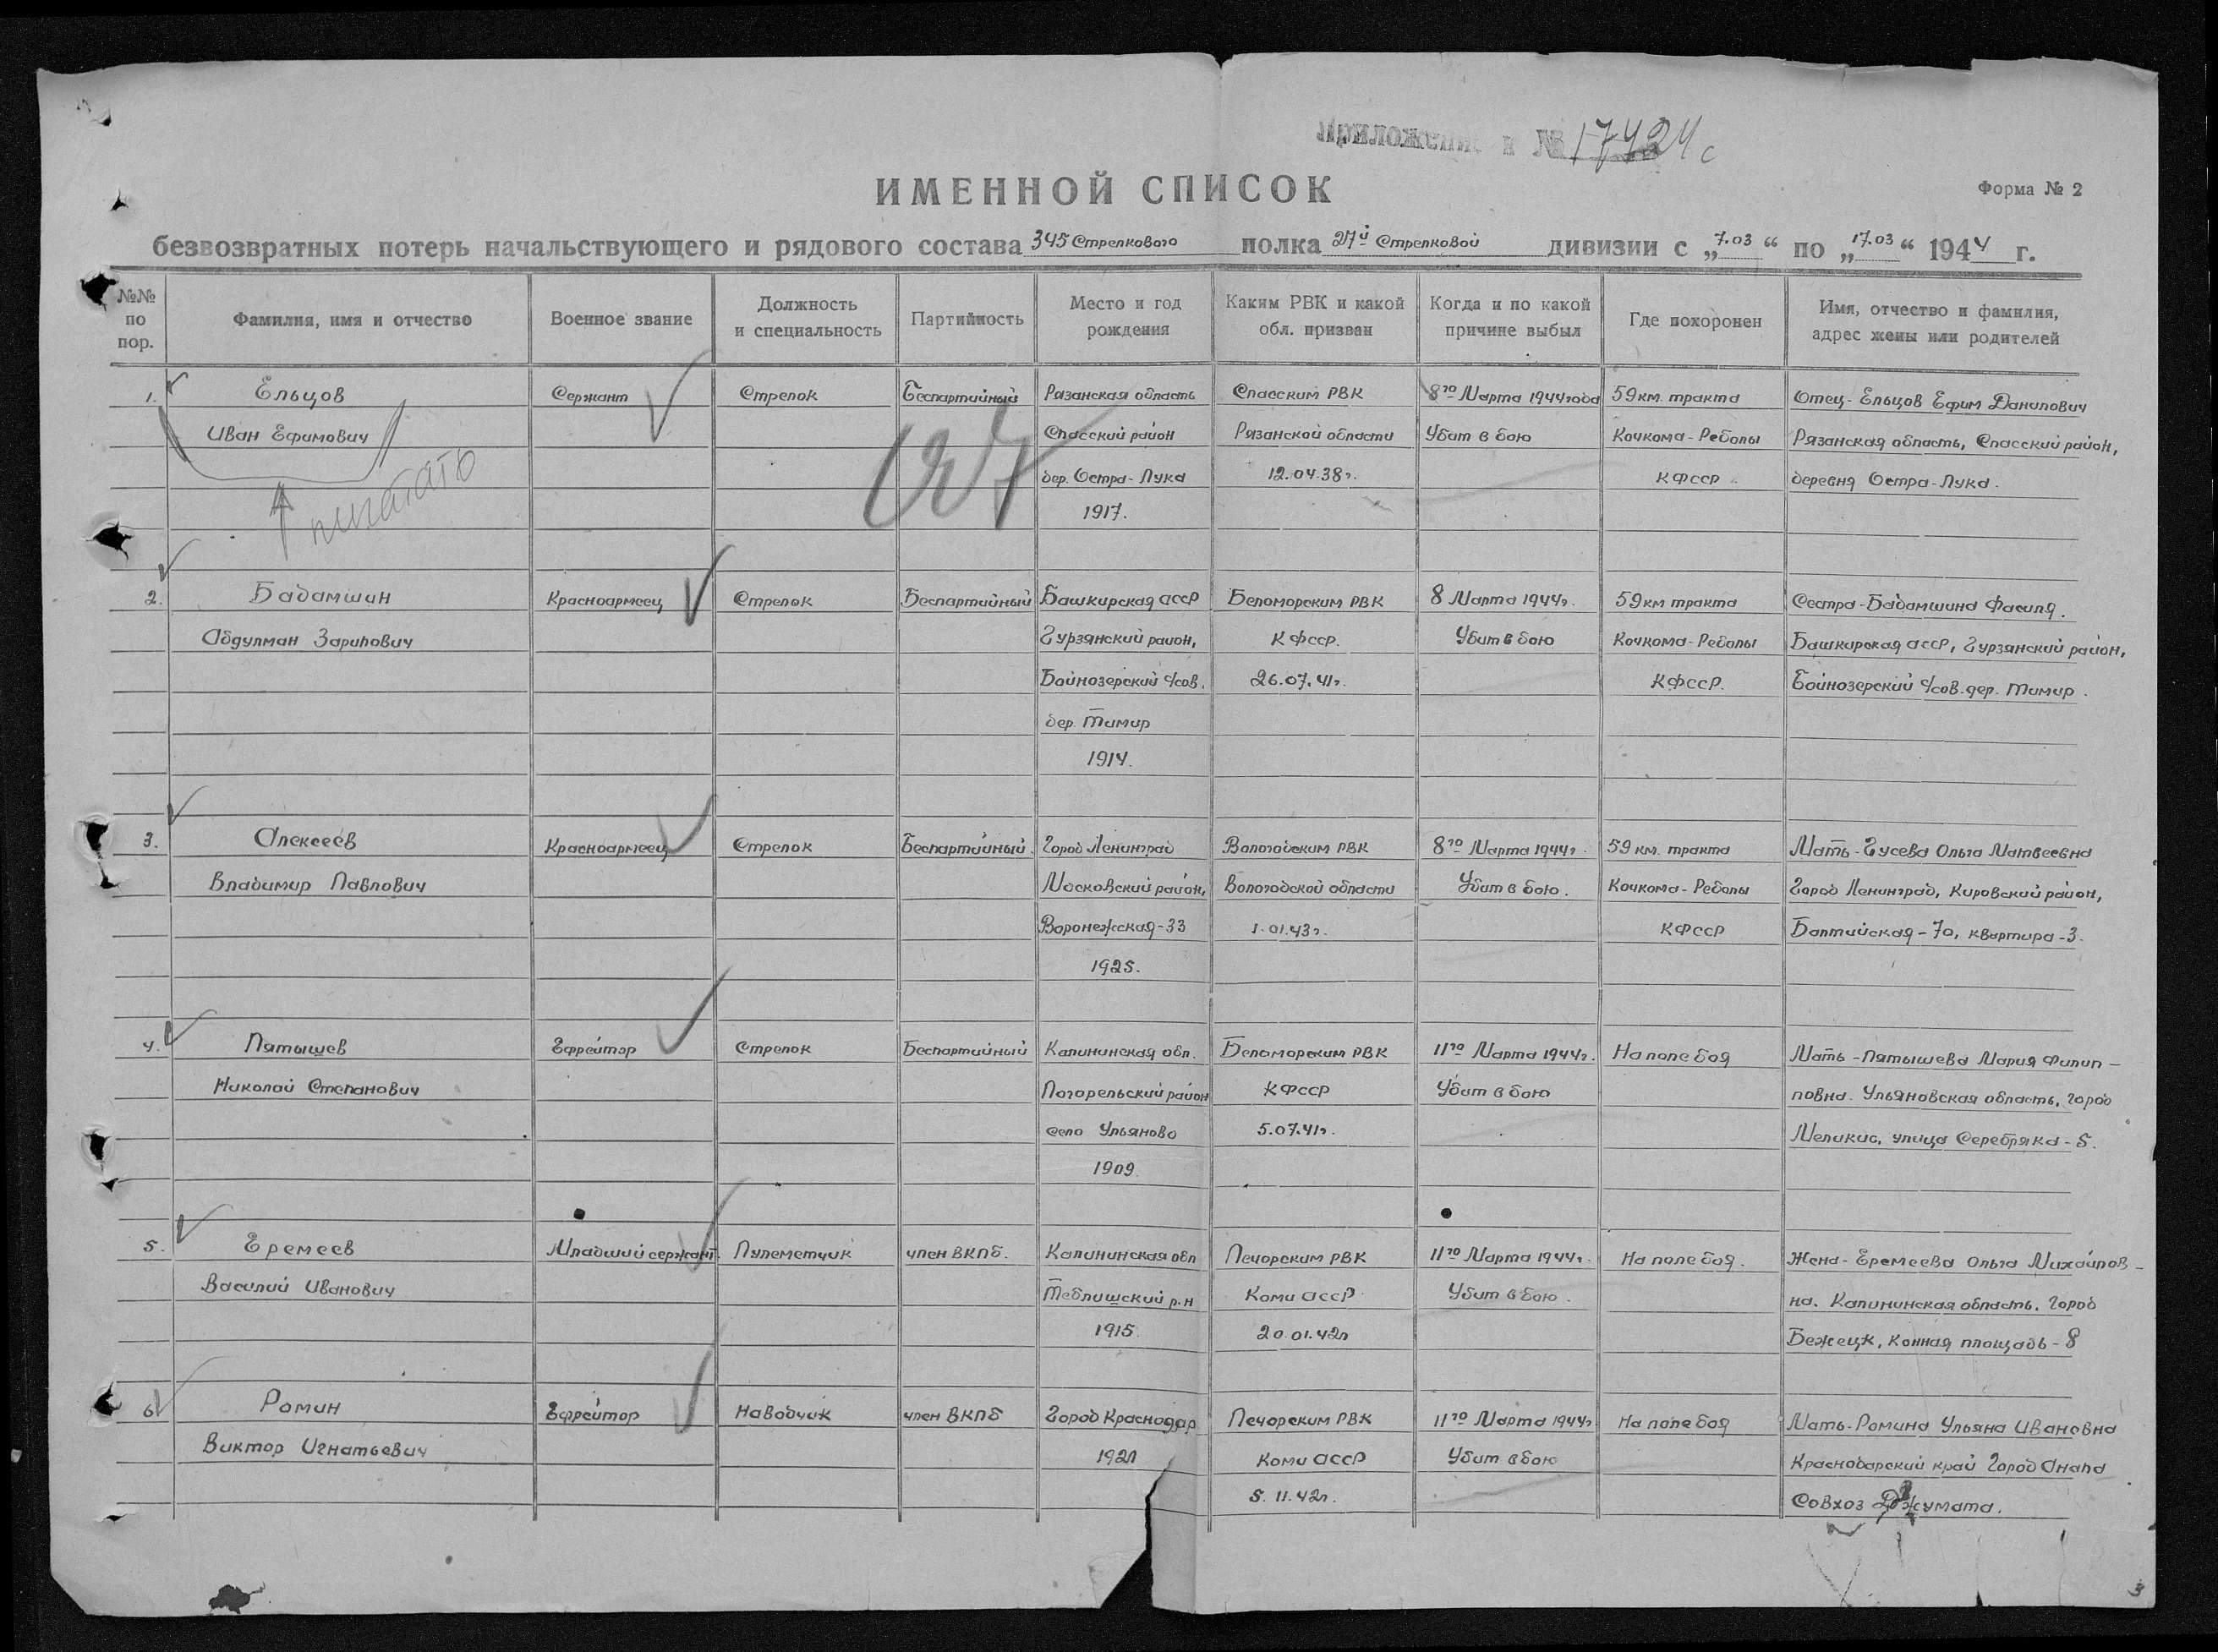 Приложение к № 17424с
ИМЕННОЙ СПИСОК
Форма № 2
безвозвратных потерь начальствующего и рядового состава 345 Стрелкового полка 27й Стрелковой дивизии с „7.03“ по „17.03“ 1944 г.
№№ по пор.
Фамилия, имя и отчество
Военное звание
Должность и специальность
Партийность
Место и год рождения
Каким РВК и какой обл. призван
Когда и по какой причине выбыл
Где похоронен
Имя, отчество и фамилия, адрес жены или родителей
1. Ельцов Сержант Стрелок Беспартийный Рязанская область Спасским РВК 8го Марта 1944 года 59 км. тракта Отец - Ельцов Ефим Данилович
Иван Ефимович Спасский район Рязанской области Убит в бою Кочкома - Реболы Рязанская область, Спасский район,
дер. Остра - Лука 12.04.38г. КФССР деревня Остра - Лука.
1917.
2. Бадамшин Красноармеец Стрелок Беспартийный Башкирская АССР Беломорским РВК 8 Марта 1944г. 59 км тракта Сестра - Бадамшина Фасиля.
Абдулман Зарипович Гурзянский район, КФССР. Убит в бою Кочкома - Реболы Башкирская АССР, Гурзянский район,
Байнозерский с/сов. 26.07.41г. КФССР. Байнозерский с/сов. дер. Тимир.
дер. Тимир
1914.
3. Алексеев Красноармеец Стрелок Беспартийный. Город Ленинград Вологодским РВК 8го Марта 1944г. 59 км. тракта Мать - Гусева Ольга Матвеевна
Владимир Павлович Московский район, Вологодской области Убит в бою. Кочкома - Реболы Город Ленинград, Кировский район,
Воронежская - 33 1.01.43г. КФССР Балтийская - 70, квартира - 3.
1925.
4. Пятышев Ефрейтор Стрелок Беспартийный Калининская обл. Беломорским РВК 11го Марта 1944г. На поле боя Мать - Пятышева Мария Филип-
Николай Степанович Погорельский район КФССР Убит в бою повна. Ульяновская область, город
село Ульяново 5.07.41г. Меликис, улица Серебряка - 5.
1909.
5. Еремеев Младший сержант. Пулеметчик член ВКПб. Калининская обл Печорским РВК 11го Марта 1944г. На поле боя. Жена - Еремеева Ольга Михайлов-
Василий Иванович Теблишский р.н Коми АССР Убит в бою. на. Калининская область. город
1915. 20.01.42г Бежецк, Конная площадь - 8
6. Ромин Ефрейтор Наводчик член ВКПб Город Краснодар Печорским РВК 11го Марта 1944г На поле боя Мать - Ромина Ульяна Ивановна
Виктор Игнатьевич Коми АССР Убит в бою Краснодарский край Город Анапа
5.11.42г. Совхоз
3